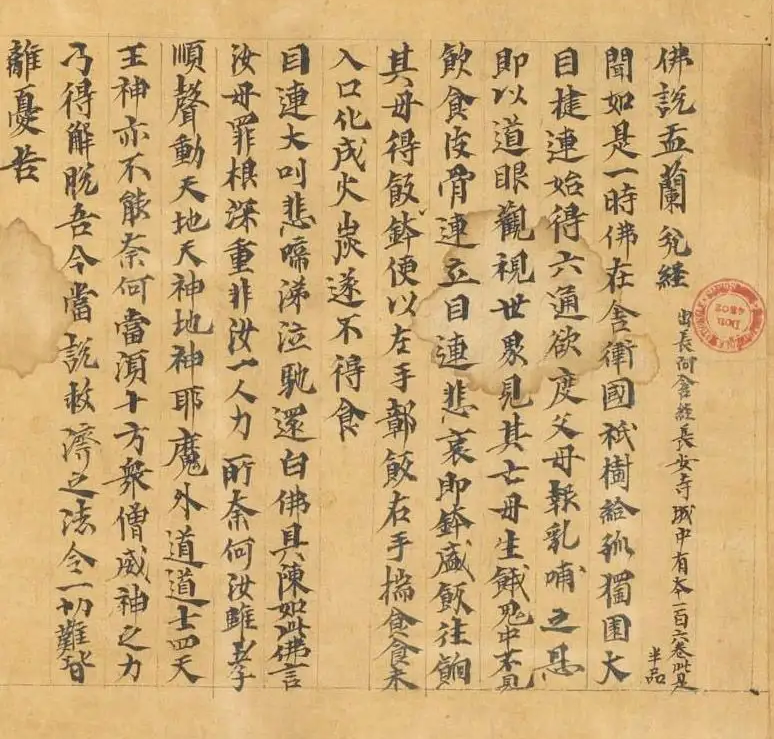 佛說盂蘭瓫經
出長阿含經長安寺城中有本一百六卷此是
半品
聞如是一時佛在舍衛國祇樹給孤獨園大
目揵連始得六通欲度父母報乳哺之恩
即以道眼觀視世界見其亡母生餓鬼中不見
飲食皮骨連立目連悲哀即鉢盛飯往餉
其母得飯鉢便以左手鄣飯右手揣食食未
入口化成火炭遂不得食
目連大叫悲啼涕泣馳還白佛具陳如此佛言
汝母罪根深重非汝一人力所奈何汝雖孝
順聲動天地天神地神耶魔外道道士四天
王神亦不能奈何當須十方衆僧威神之力
乃得解脫吾今當說救濟之法令一切難皆
離憂苦